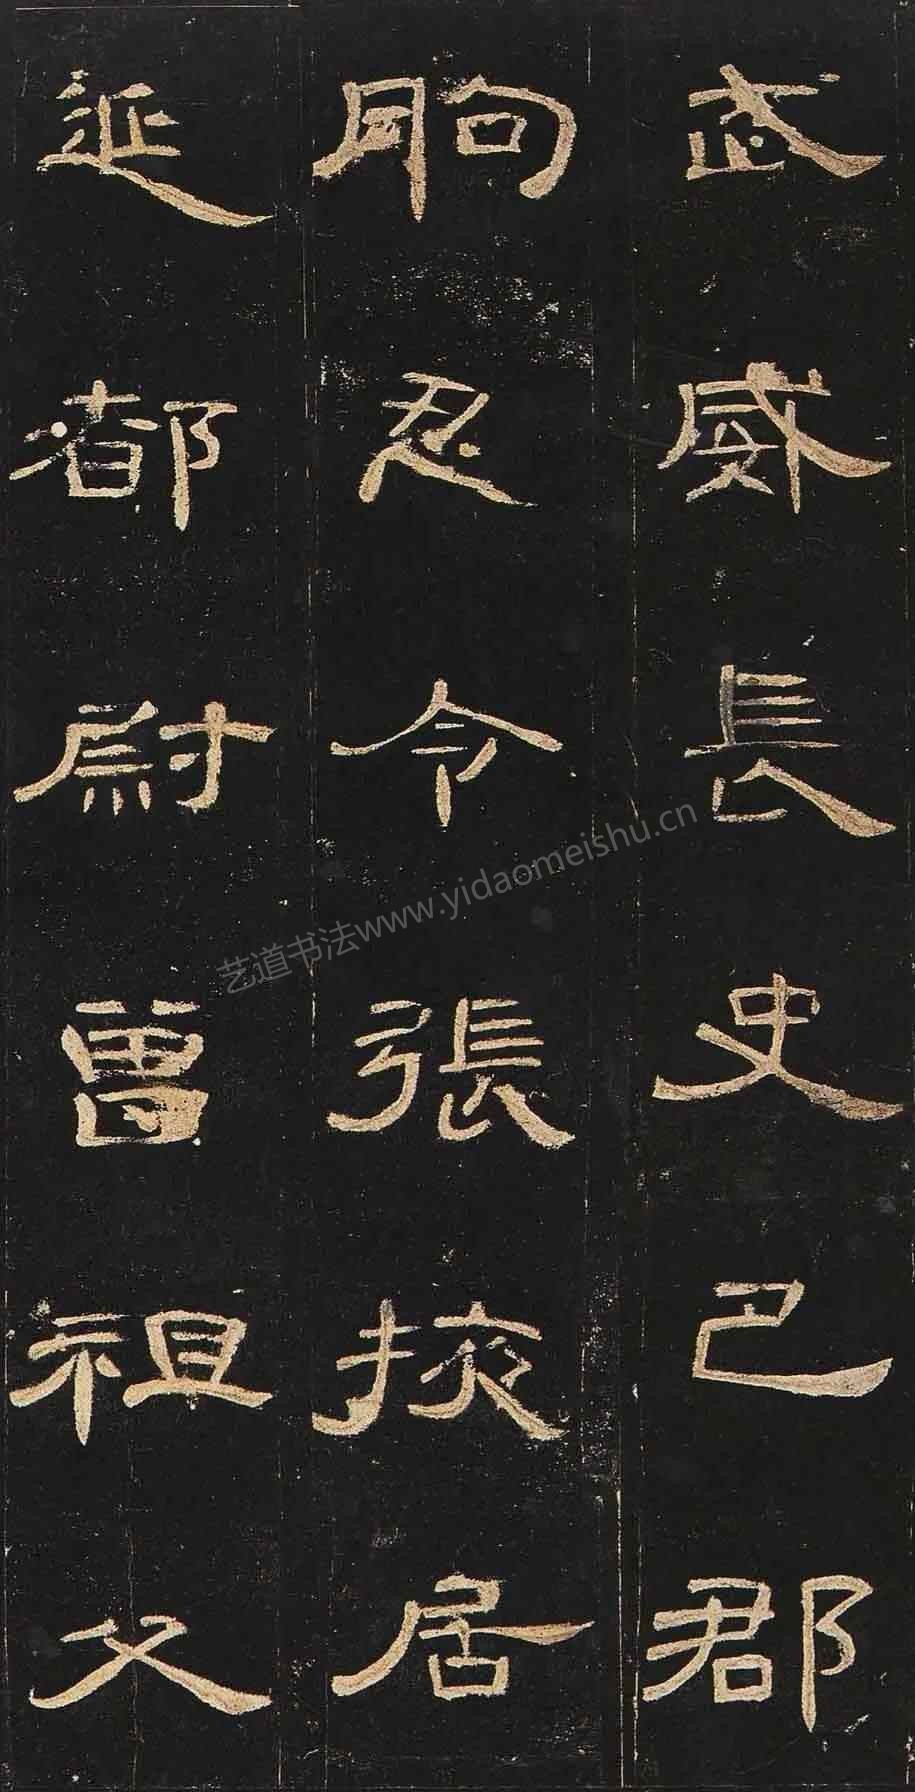 武威長史巴郡
朐忍令張掖居
延都尉曾祖父
艺道书法www.yidaomeishu.cn